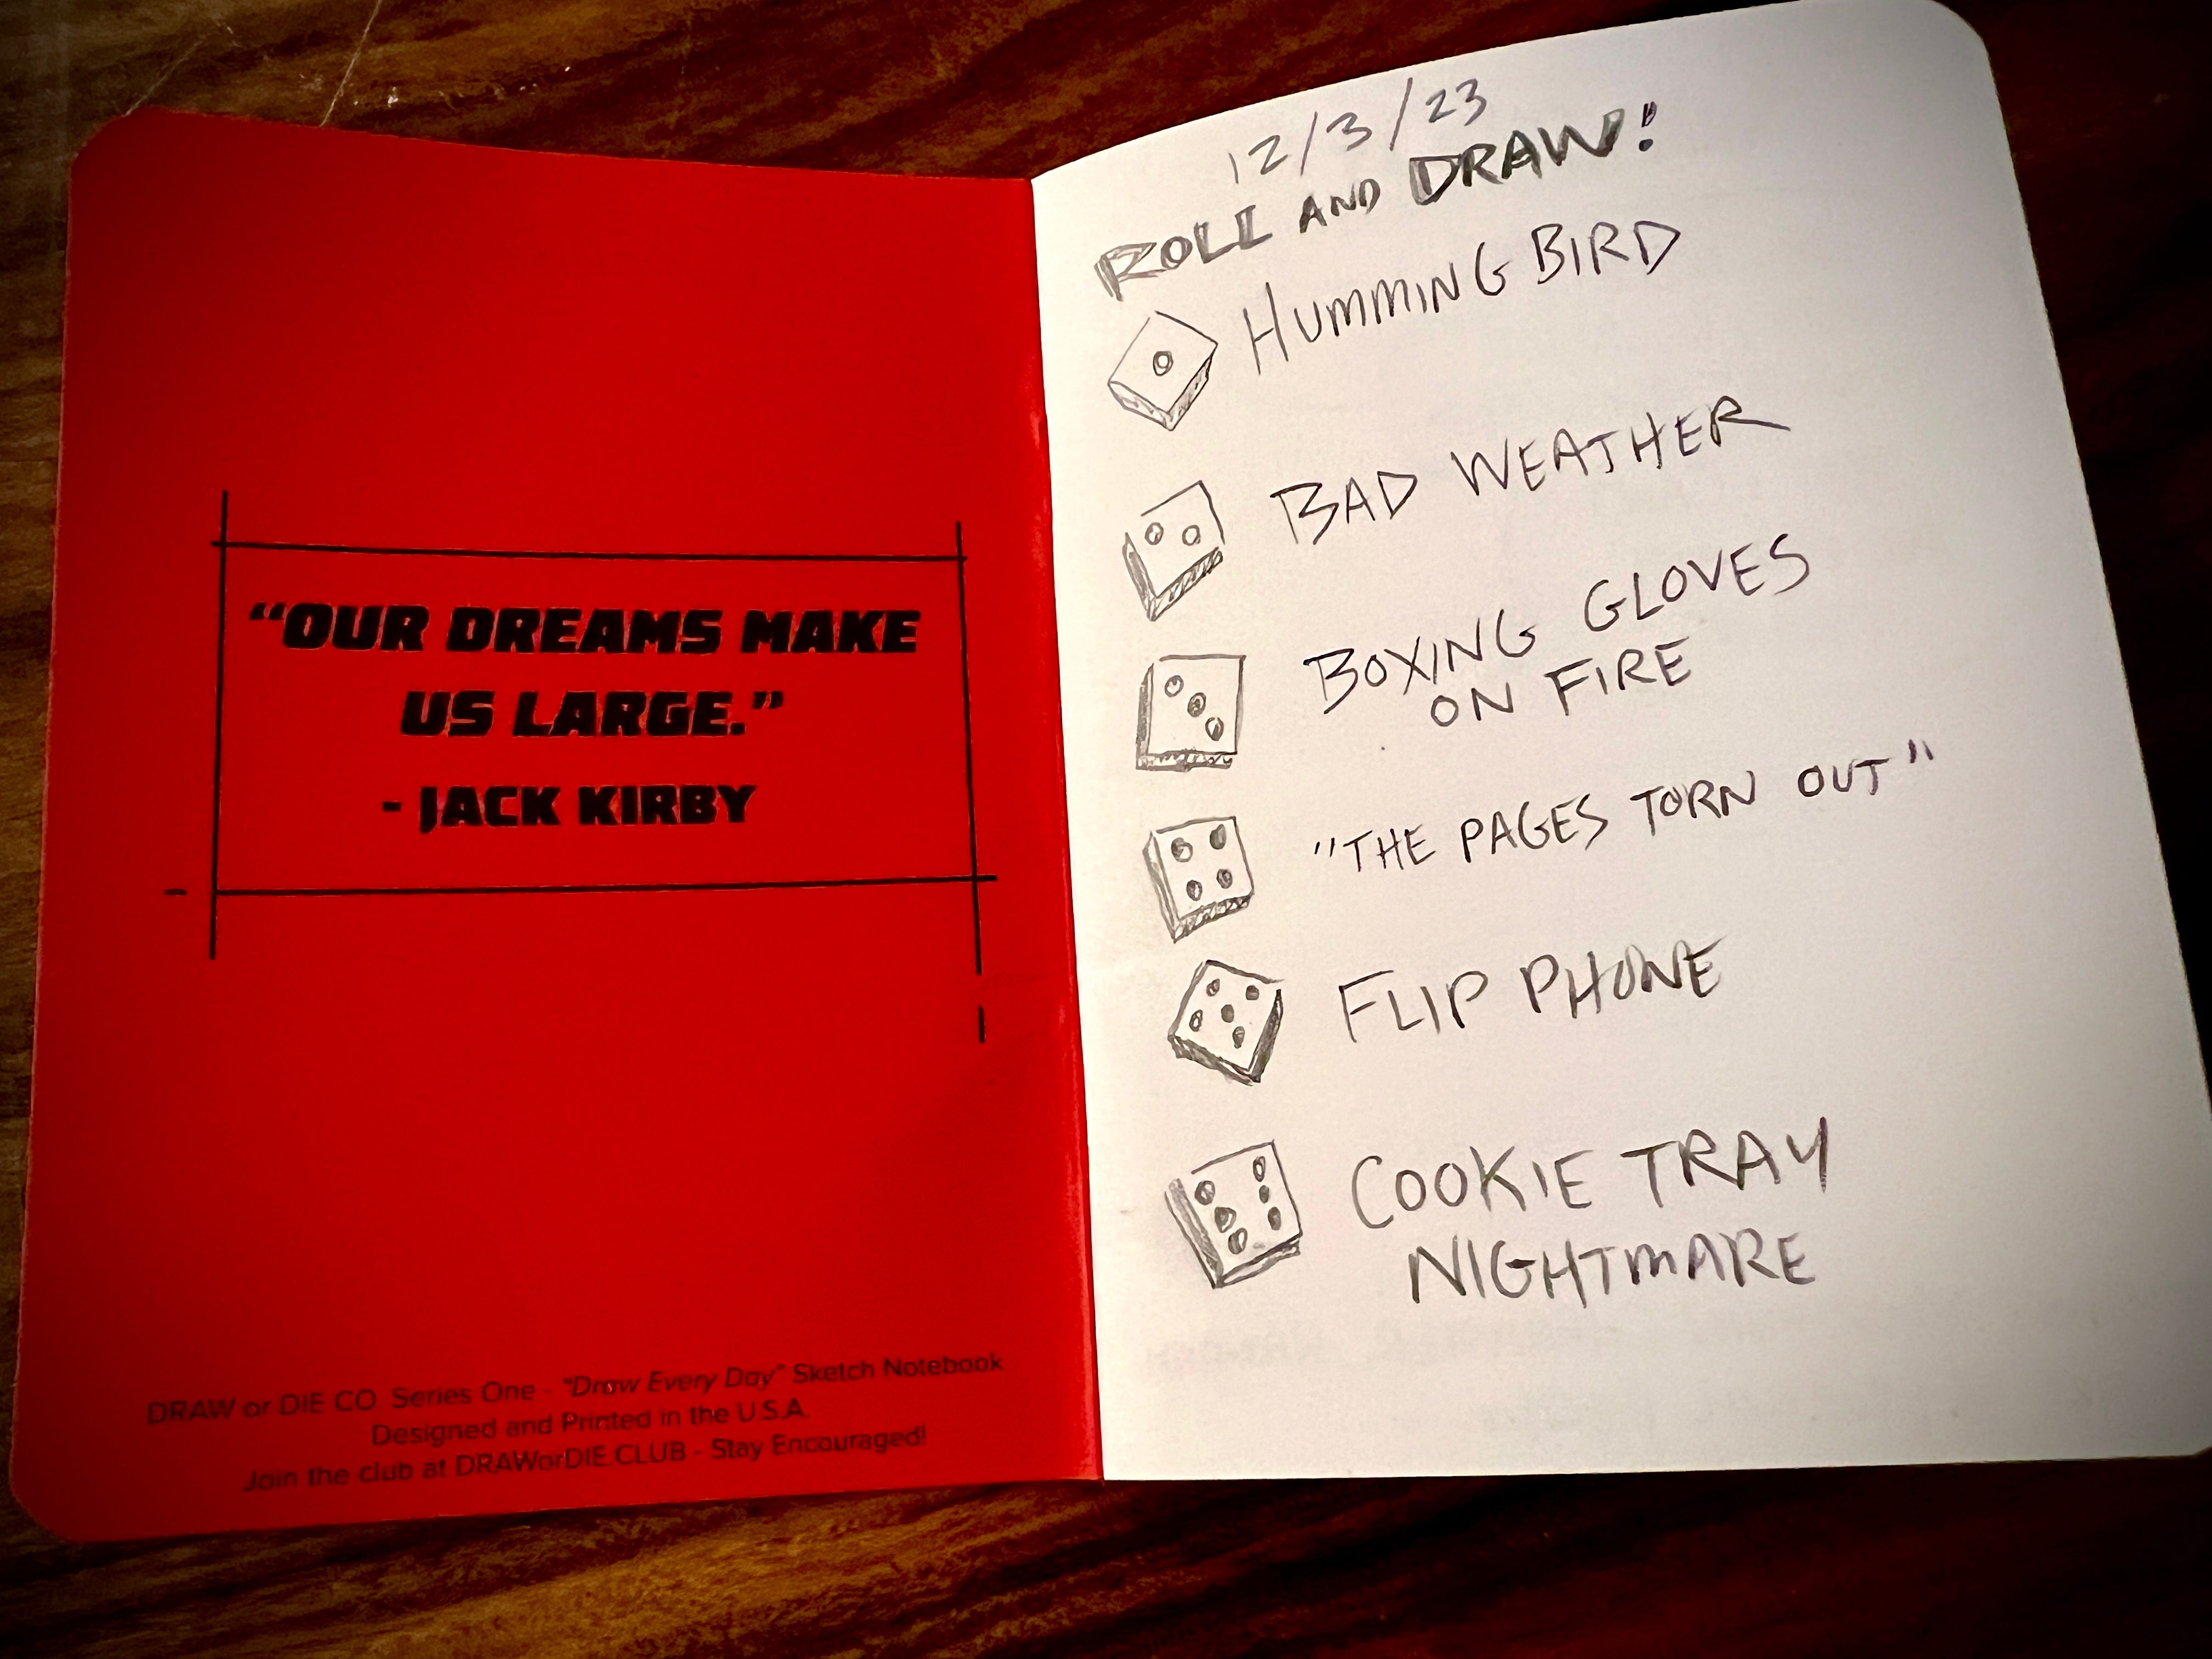 “OUR DREAMS MAKE
US LARGE.”
- JACK KIRBY
DRAW or DIE CO. Series One - “Draw Every Day” Sketch Notebook
Designed and Printed in the U.S.A.
Join the club at DRAWorDIE.CLUB - Stay Encouraged!
12/3/23
ROLL AND DRAW!
HUMMING BIRD
BAD WEATHER
BOXING GLOVES
ON FIRE
"THE PAGES TORN OUT"
FLIP PHONE
COOKIE TRAY
NIGHTMARE